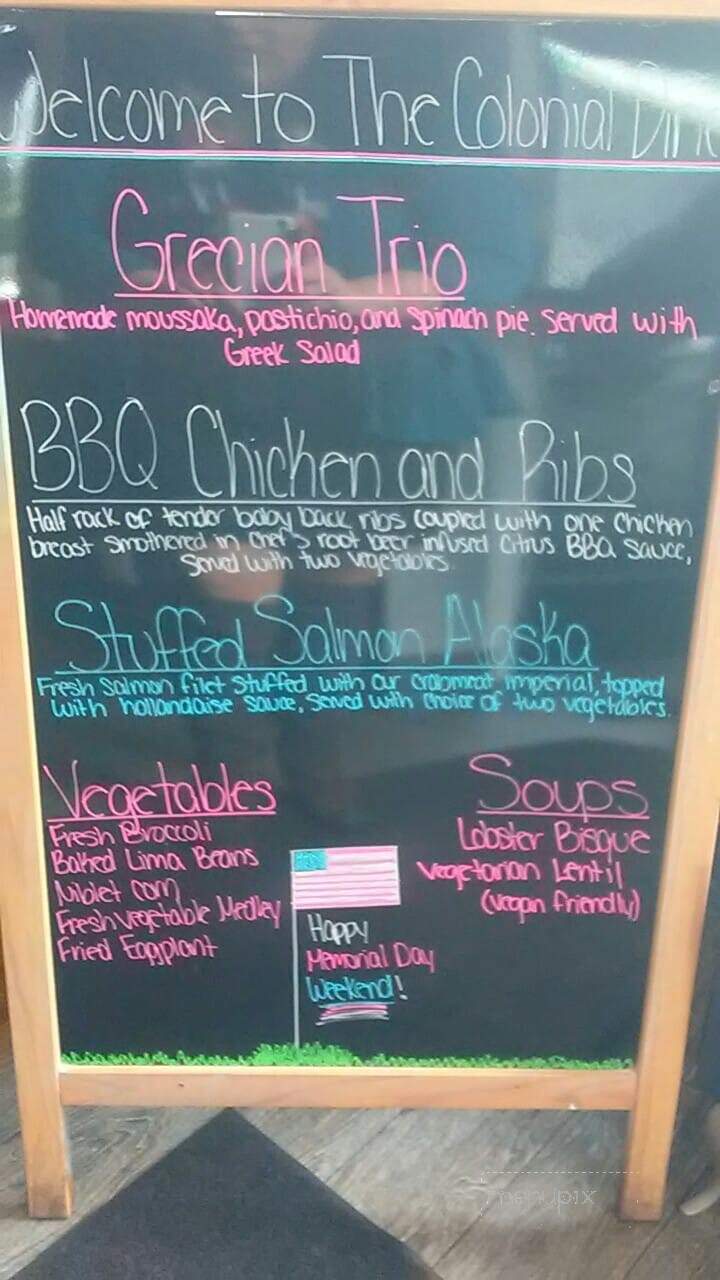 Welcome to The Colonial Din
Grecian Trio
Homemade moussaka, pastichio, and spinach pie. Served with
Greek Salad
BBQ Chicken and Ribs
Half rack of tender baby back ribs coupled with one chicken
breast smothered in chef's root beer infused citrus BBQ sauce,
Served with two vegetables.
Stuffed Salmon Alaska
Fresh Salmon filet stuffed with our crabmeat imperial, topped
with hollandaise sauce, served with choice of two vegetables.
Vegetables
Fresh Broccoli
Baked Lima Beans
Niblet corn
Fresh vegetable Medley
Fried Eggplant
Soups
Lobster Bisque
Vegetarian Lentil
(vegan friendly)
Happy
Memorial Day
Weekend!
menupix